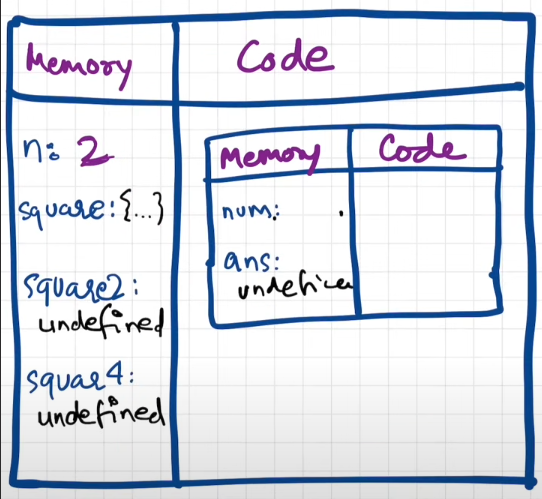 Memory
Code
n: 2
square: {...}
square2:
undefined
squar4:
undefined
Memory
Code
num:
ans:
undefined